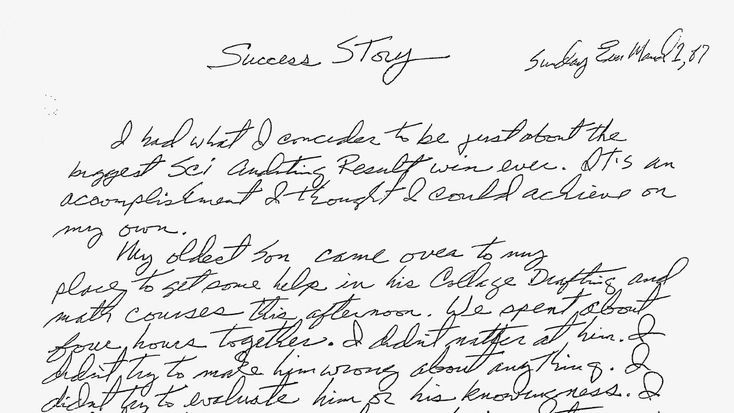 Success Story
Sunday Eve March 1, 87
I had what I concider to be just about the
biggest Sci Auditing Result win ever. It's an
accomplishment I thought I could achieve on
my own.
My oldest son came over to my
place to get some help in his Collage Drafting and
math courses this afternoon. We spent about
four hours together. I didn't natter at him. I
didn't try to make him wrong about anything. I
didn't try to evaluate him or his knowingness. I